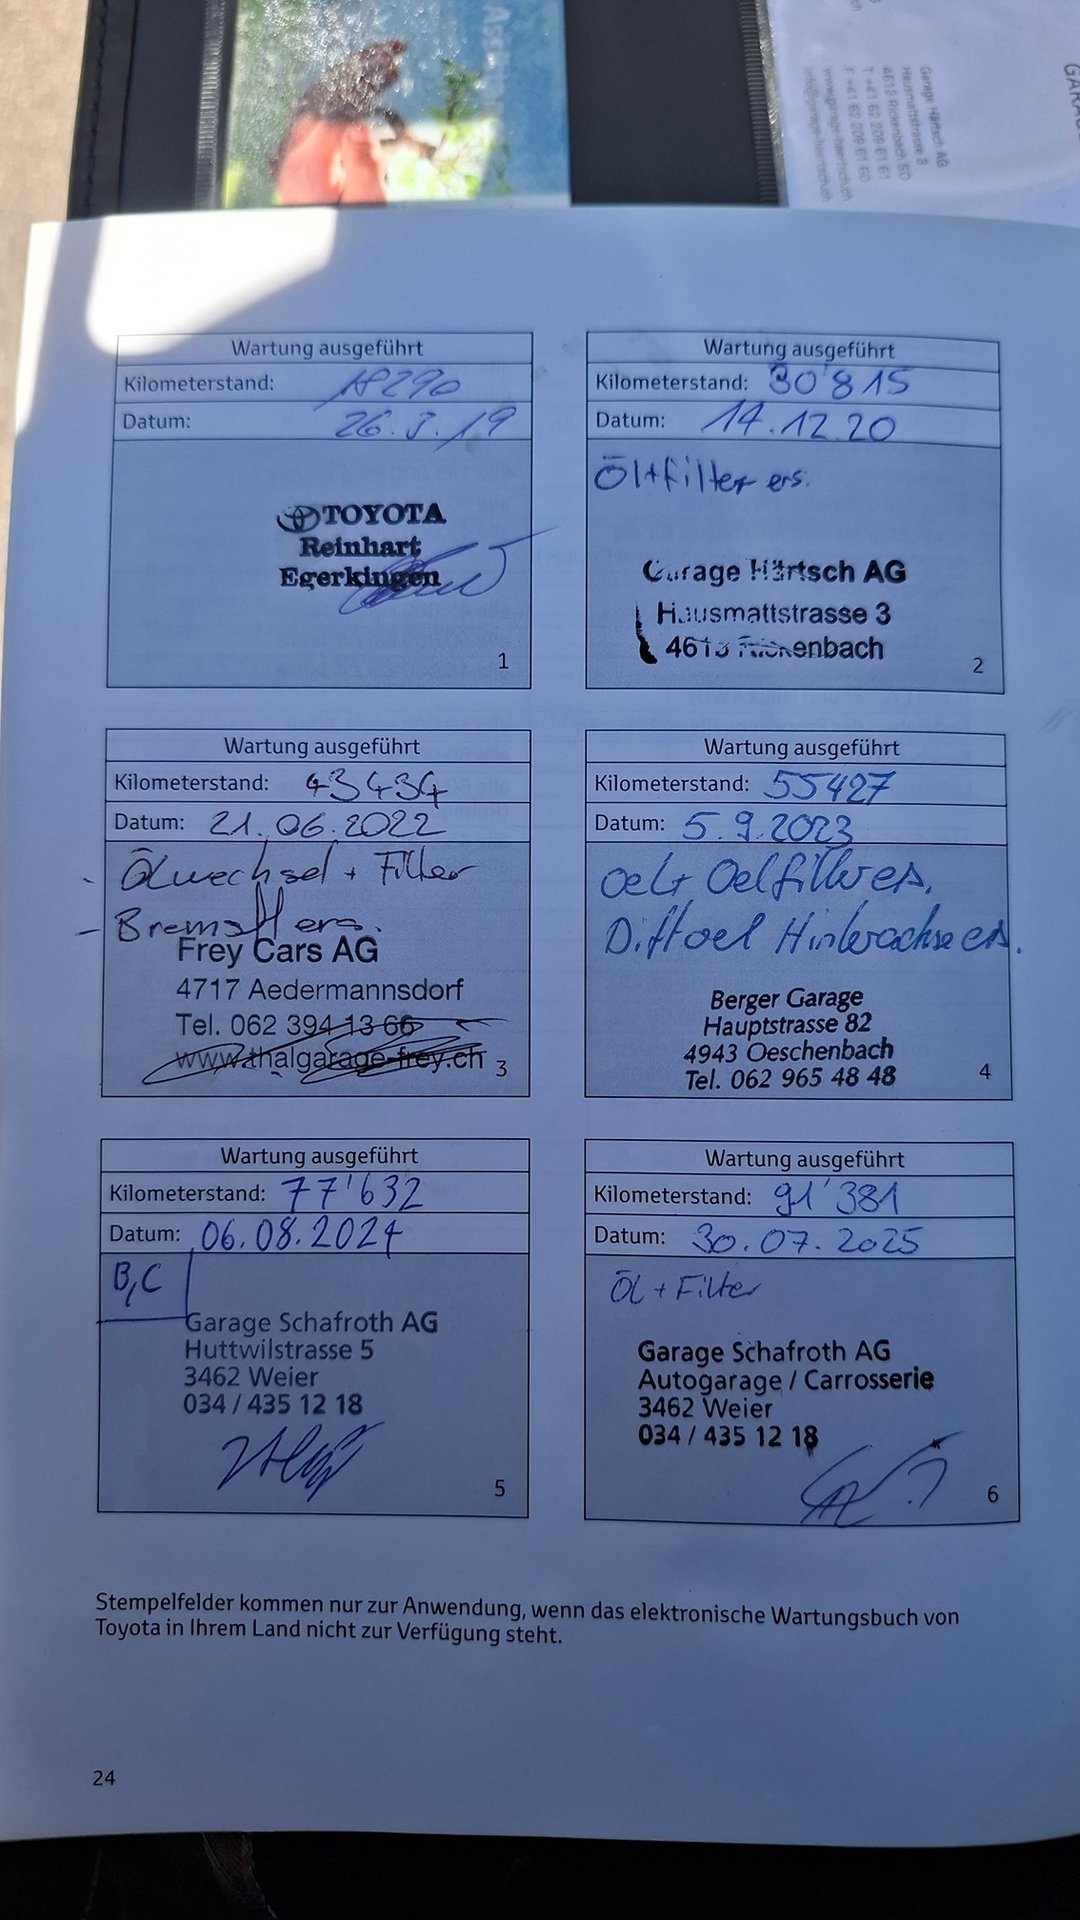 Garage Härtsch AG
Hausmattstrasse 3
4613 Rickenbach SO
T +41 62 209 61 61
F +41 62 209 61 60
Wartung ausgeführt
Kilometerstand: 18290
Datum: 26.3.19
TOYOTA
Reinhart
Egerkingen
1
Wartung ausgeführt
Kilometerstand: 30'815
Datum: 14.12.20
Öl+Filter ers.
Garage Härtsch AG
Hausmattstrasse 3
4613 Rickenbach
2
Wartung ausgeführt
Kilometerstand: 43434
Datum: 21.06.2022
- Ölwechsel + Filter
- Bremsfl ers.
Frey Cars AG
4717 Aedermannsdorf
Tel. 062 394 13 66
www.thalgarage-frey.ch
3
Wartung ausgeführt
Kilometerstand: 55427
Datum: 5.9.2023
Oel+ Oelfilter ers.
Diffoel Hinterachse ers.
Berger Garage
Hauptstrasse 82
4943 Oeschenbach
Tel. 062 965 48 48
4
Wartung ausgeführt
Kilometerstand: 77'632
Datum: 06.08.2024
B,C
Garage Schafroth AG
Huttwilstrasse 5
3462 Weier
034 / 435 12 18
5
Wartung ausgeführt
Kilometerstand: 91'381
Datum: 30.07.2025
Öl + Filter
Garage Schafroth AG
Autogarage / Carrosserie
3462 Weier
034 / 435 12 18
6
Stempelfelder kommen nur zur Anwendung, wenn das elektronische Wartungsbuch von
Toyota in Ihrem Land nicht zur Verfügung steht.
24